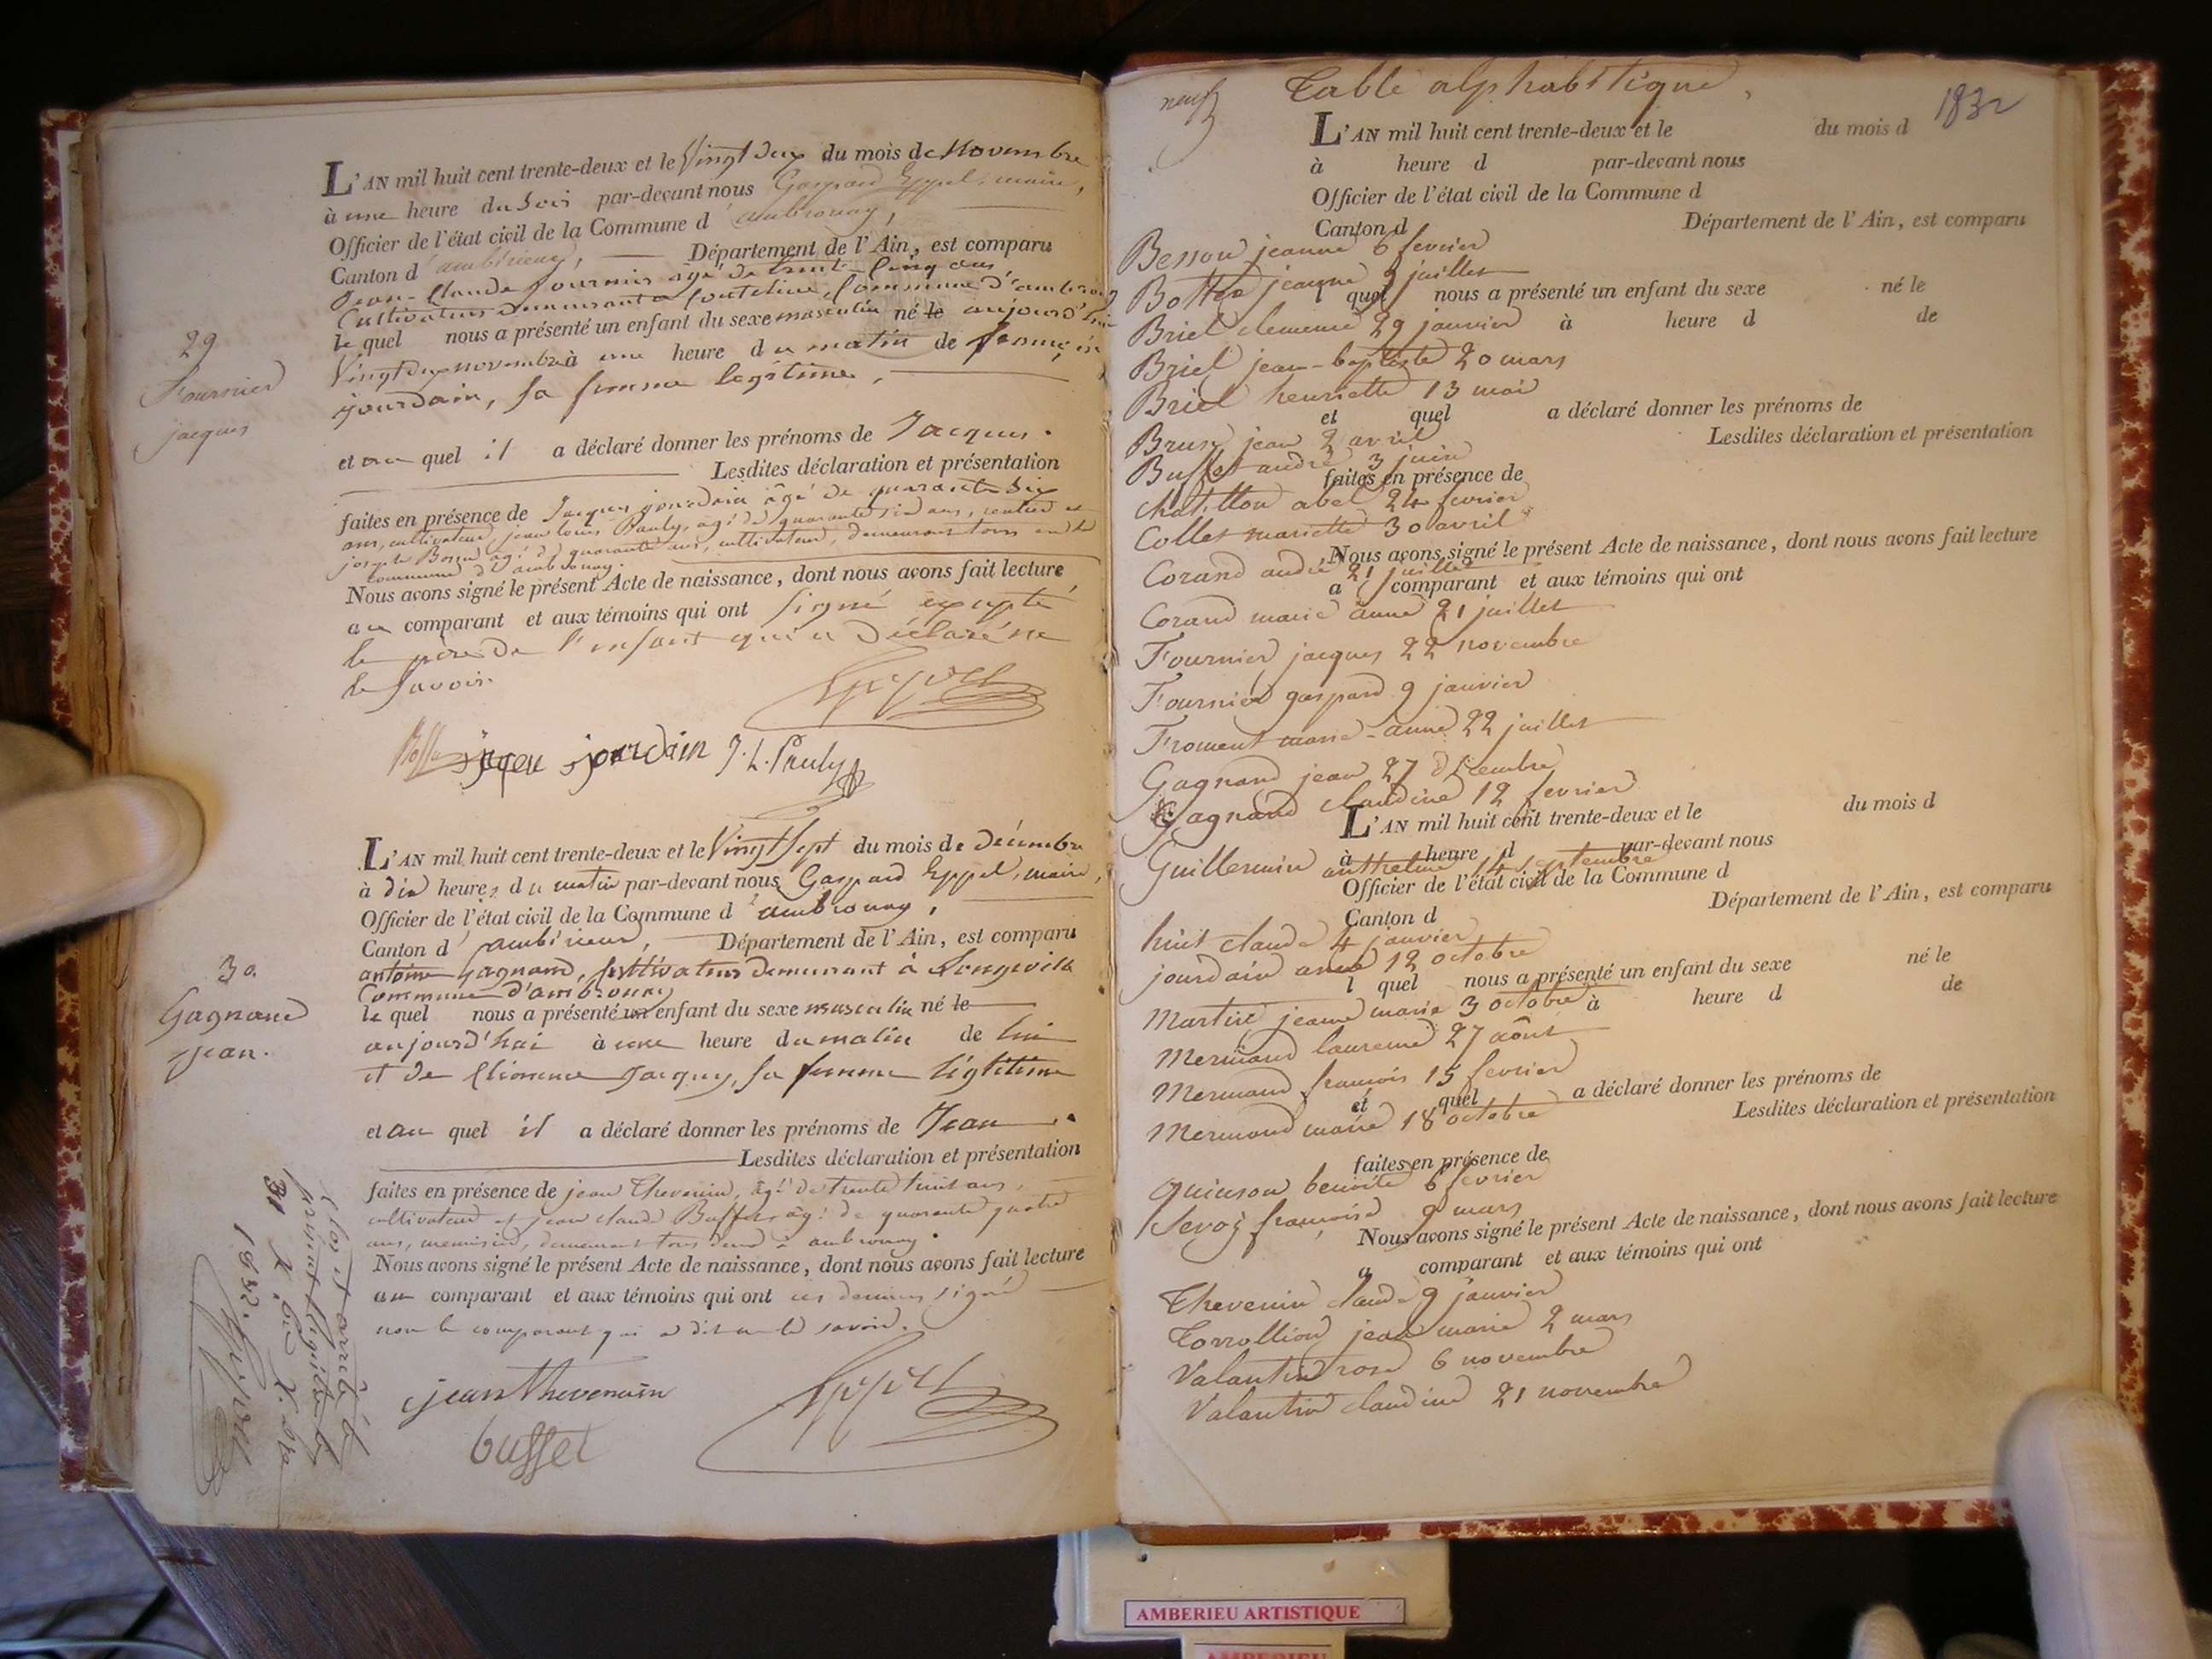 L'AN mil huit cent trente-deux et le Vingt deux du mois de Novembre
à une heure du Soir par-devant nous Gaspard Eppel, maire,
Officier de l'état civil de la Commune d'ambronay,
Canton d'ambérieux, Département de l'Ain, est comparu
Jean-Claude fournier agé de trente-Cinq ans,
Cultivateur demeurant a Commune d'ambronay
le quel nous a présenté un enfant du sexe masculin né le aujourd'hui
Vingt deux novembre à une heure du matin de
jourdain, sa femme legitime,
29
Fournier
jacques
et au quel il a déclaré donner les prénoms de Jacques.
Lesdites déclaration et présentation
faites en présence de Jacques jourdain âgé de quarante six
ans, cultivateur, jean louis Pauly, agé de quarante six ans, rentier et
joseph agé de quarante ans, cultivateur, demeurant tous
commune d'ambronay.
Nous avons signé le présent Acte de naissance, dont nous avons fait lecture
au comparant et aux témoins qui ont signé excepté
le père de l'enfant qui a déclaré ne
le savoir.
Eppel
jourdain J. L. Pauly
L'AN mil huit cent trente-deux et le Vingt sept du mois de Décembre
à dix heures du matin par-devant nous Gaspard Eppel, maire,
Officier de l'état civil de la Commune d'ambronay,
Canton d'ambérieux, Département de l'Ain, est comparu
antoine Gagnand, Cultivateur demeurant à Longeville
Commune d'ambronay
le quel nous a présenté un enfant du sexe masculin né le
aujourd'hui à une heure du matin de lui
et de Jacques, sa femme légitime
30.
Gagnand
jean.
et au quel il a déclaré donner les prénoms de Jean.
Lesdites déclaration et présentation
faites en présence de jean Thevenin, âgé de trente huit ans,
cultivateur et jean claude Buffet, âgé de quarante quatre
ans, menuisier, demeurant tous deux à ambronay.
Nous avons signé le présent Acte de naissance, dont nous avons fait lecture
au comparant et aux témoins qui ont ces derniers signé
non le comparant qui a dit ne le savoir.
jean thevenain
Eppel
buffet
Clos et arrêté le
présent
31 X.bre
1832.
Eppel
neuf
Table alphabétique
1832
L'AN mil huit cent trente-deux et le du mois d
à heure d par-devant nous
Officier de l'état civil de la Commune d
Canton d Département de l'Ain, est comparu
Besson jeanne 6 fevrier
Bottex jeanne 9 juillet
l quel nous a présenté un enfant du sexe né le
Briel clemence 29 janvier
à heure d de
Briel jean-baptiste 20 mars
Briel henriette 13 mai
et quel a déclaré donner les prénoms de
Brun jean 2 avril
Lesdites déclaration et présentation
Buffet andré 3 juin
faites en présence de
chatillon abel 24 fevrier
Collet mariette 30 avril
Nous avons signé le présent Acte de naissance, dont nous avons fait lecture
Corand andré 21 juillet
a comparant et aux témoins qui ont
Corand marie anne 21 juillet
Fournier jacques 22 novembre
Fournier gaspard 9 janvier
Froment marie-anne 22 juillet
Gagnand jean 27 decembre
Gagnand claudine 12 fevrier
L'AN mil huit cent trente-deux et le du mois d
à heure d par-devant nous
Guillermin anthelme 14 septembre
Officier de l'état civil de la Commune d
Canton d Département de l'Ain, est comparu
huit claude 4 janvier
jourdain anne 12 octobre
l quel nous a présenté un enfant du sexe né le
Martin jeanne marie 3 octobre
à heure d de
Mermand laurence 27 aôut
Mermand francois 15 fevrier
et quel a déclaré donner les prénoms de
Mermand marie 18 octobre
Lesdites déclaration et présentation
faites en présence de
Quinson benoite 6 fevrier
Sevoz françoise 9 mars
Nous avons signé le présent Acte de naissance, dont nous avons fait lecture
a comparant et aux témoins qui ont
Thevenin claude 9 janvier
Torrollion jean marie 2 mars
Valantin rose 6 novembre
Valantin claudine 21 novembre
AMBERIEU ARTISTIQUE
AMBERIEU